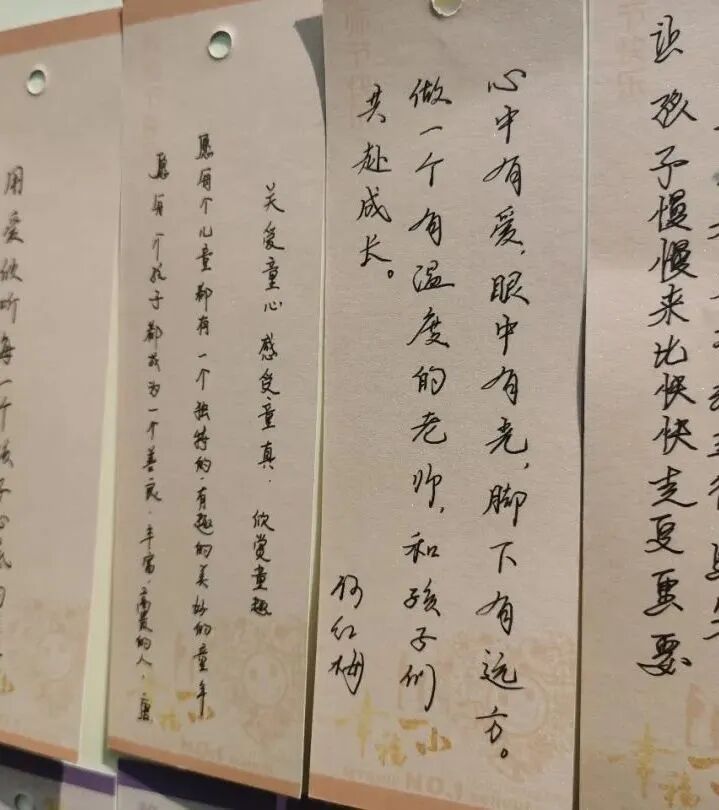 让孩子慢慢来比快快走更重要
心中有爱,眼中有光,脚下有远方。
做一个有温度的老师,和孩子们
共赴成长。
何红梅
关爱童心 感受童真 欣赏童趣
愿每个儿童都有一个独特的、有趣的美好的童年
愿每一个孩子都成为一个善良、丰富、高贵的人。
用爱倾听每一个孩子心底的
幸福一小
幸福